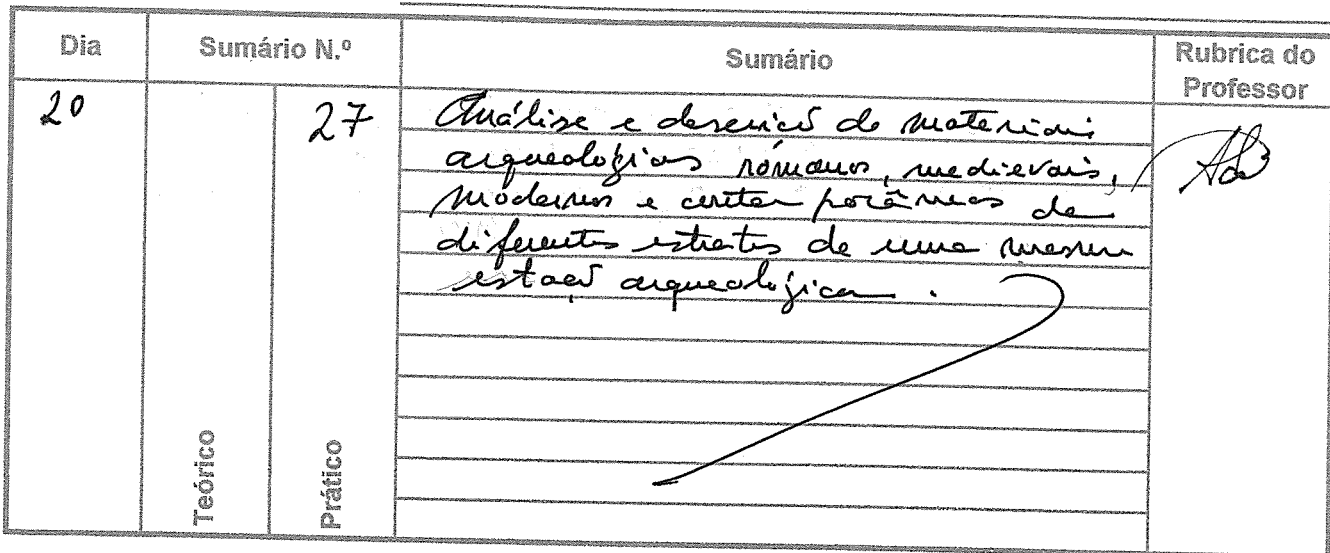 Dia Sumário N.º Sumário Rubrica do Professor
20 27 Análise e descrição de materiais
arqueológicos romanos, medievais,
modernos e contemporâneos de
diferentes estratos de uma mesma
estação arqueológica.
Teórico
Prático